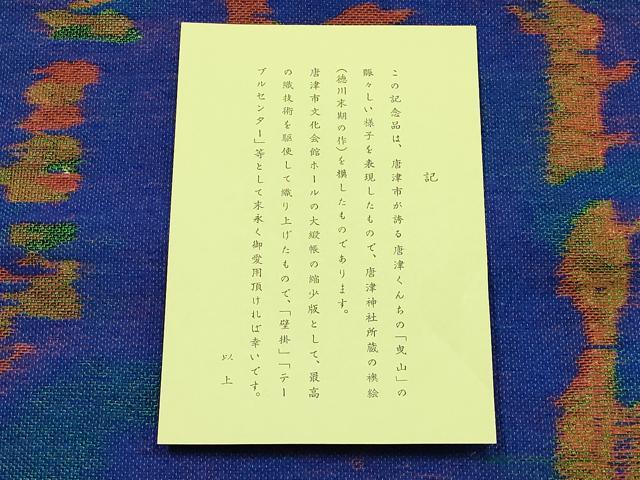 記
この記念品は、唐津市が誇る唐津くんちの「曳山」の
賑々しい様子を表現したもので、唐津神社所蔵の襖絵
（徳川末期の作）を模したものであります。
唐津市文化会館ホールの大緞帳の縮少版として、最高
の織技術を駆使して織り上げたもので、「壁掛」「テー
ブルセンター」等として末永く御愛用頂ければ幸いです。
以上